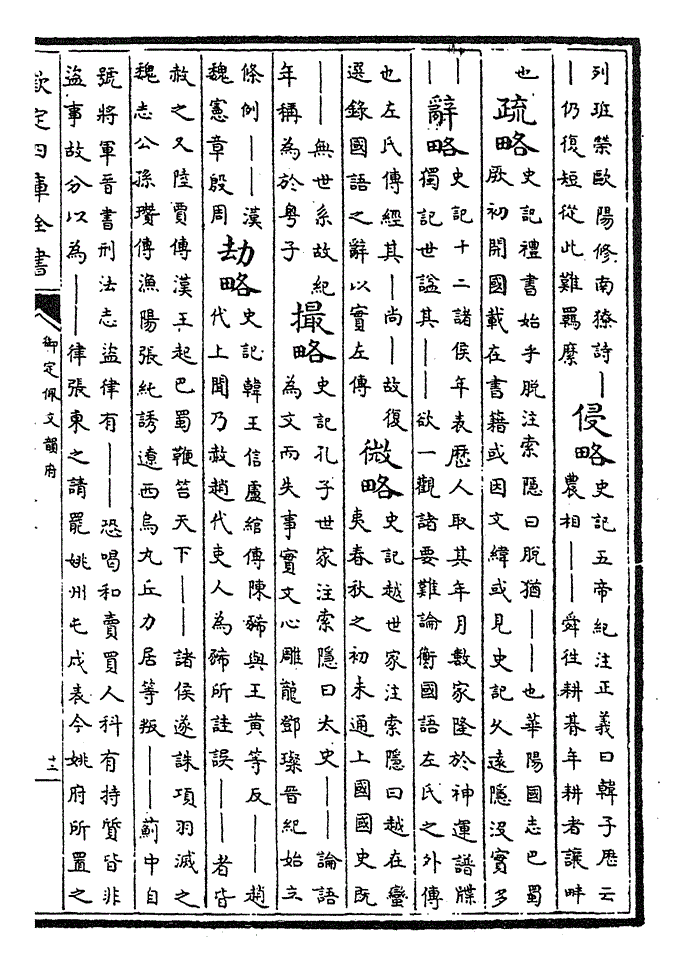 列班榮歐陽修南獠詩｜
｜仍復短從此難羈縻
侵略
史記五帝紀注正義曰韓子歷云
農相｜｜舜徃耕朞年耕者讓畔
也
疏略
史記禮書始乎脫注索隱曰脫猶｜｜也華陽國志巴蜀
厥初開國載在書籍或因文緯或見史記乆遠隱沒實多
｜｜
辭略
史記十二諸侯年表歷人取其年月數家隆於神運譜牒
獨記世諡其｜｜欲一觀諸要難論衡國語左氏之外傳
也左氏傳經其｜尚｜故復
選錄國語之辭以實左傳
微略
史記越世家注索隱曰越在蠻
夷春秋之初未通上國國史既
｜｜無世系故紀
年稱為於粵子
撮略
史記孔子世家注索隱曰太史｜｜論語
為文而失事實文心雕龍鄧璨晉紀始立
條例｜｜漢
魏憲章殷周
劫略
史記韓王信盧綰傳陳豨與王黃等反｜｜趙
代上聞乃赦趙代吏人為豨所詿誤｜｜者皆
赦之又陸賈傳漢王起巴蜀鞭笞天下｜｜諸侯遂誅項羽滅之
魏志公孫瓚傳漁陽張純誘遼西烏丸丘力居等叛｜｜薊中自
號將軍晉書刑法志盜律有｜｜恐喝和賣買人科有持質皆非
盜事故分以為｜｜律張柬之請罷姚州屯戍表今姚府所置之
欽定四庫全書
御定佩文韻府
十二